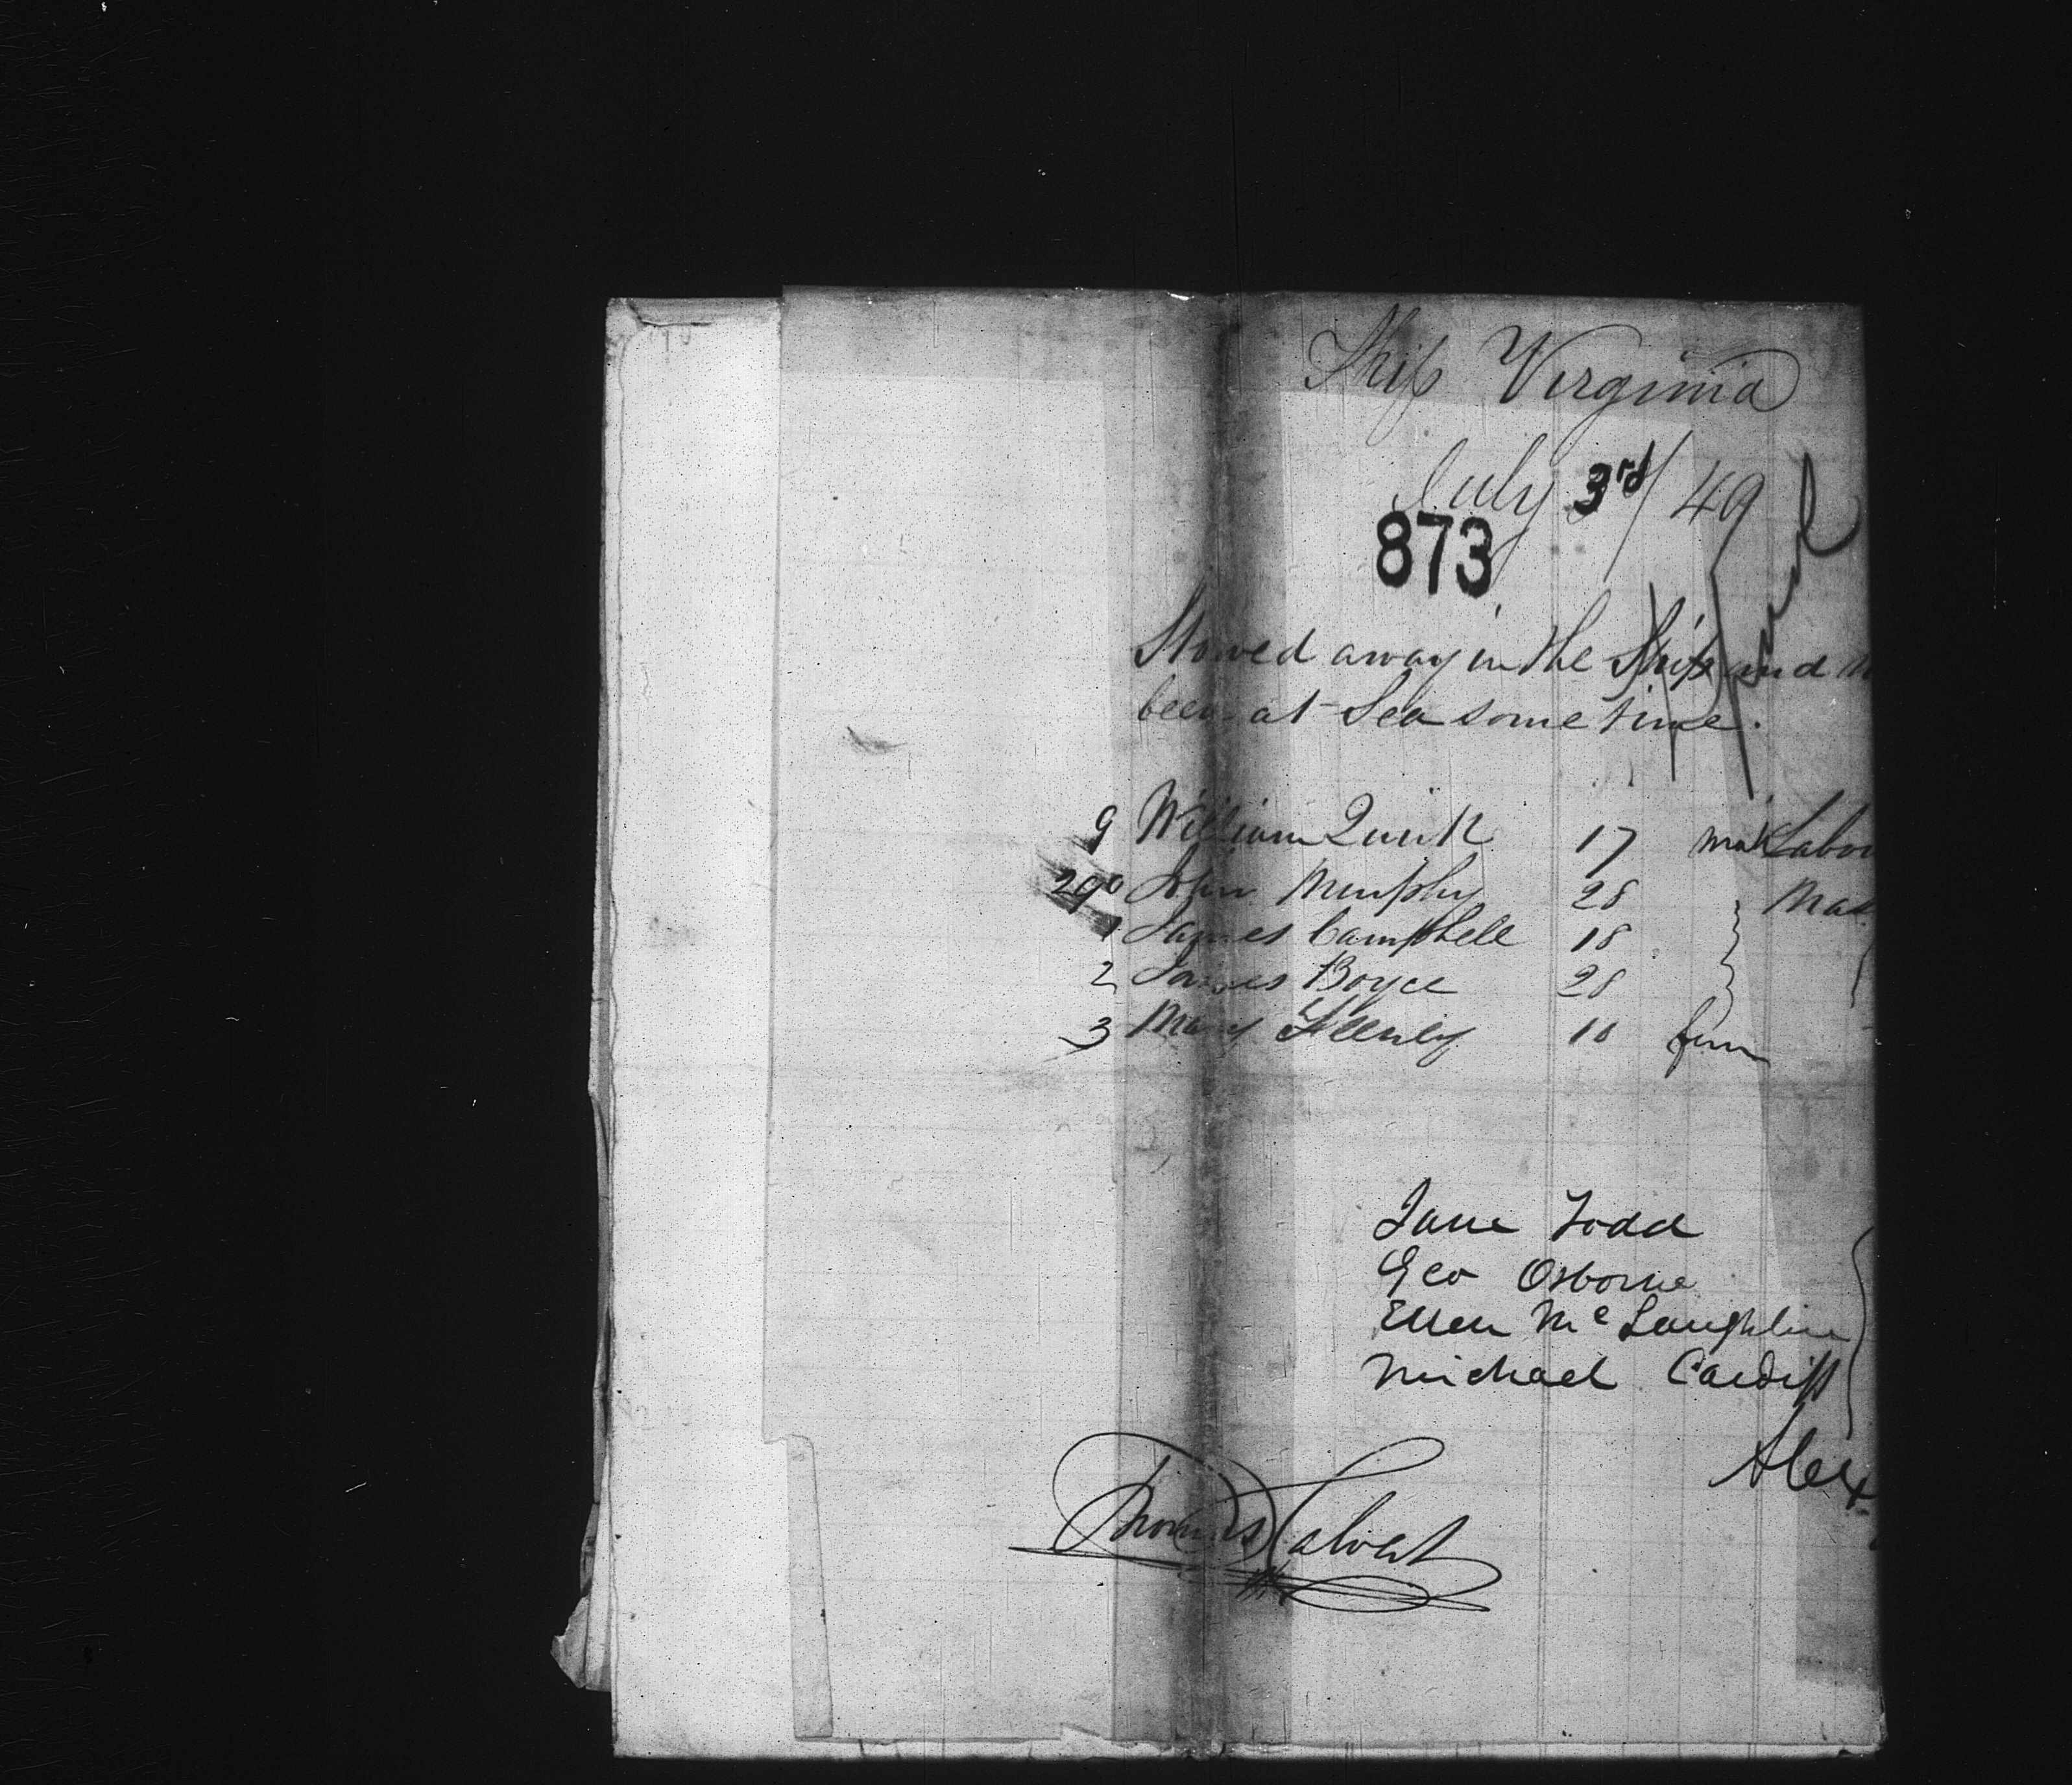 Ship Virginia
July 3rd/49
873
Stowed away in the Ship and
been at Sea some time.
9 William Quirk 17 male Labou
290 John Murphy 28 Mal
1 James Campbell 18
2 James Boyce 28
3 Mary 18 fem
Jane Todd
Geo Osborne
Ellen McLaughlin
Michael Cardiff
Alex
Thomas Calvert